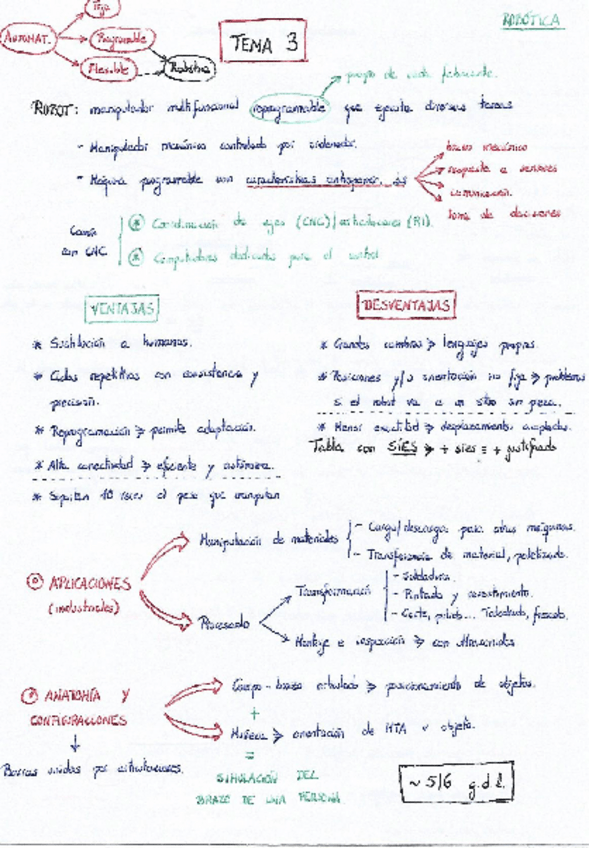 ROBÓTICA
Fija
AUTOMAT.
Programable
Flexible
Robótica
TEMA 3
propio de cada fabricante.
ROBOT: manipulador multifuncional reprogramable que ejecuta diversas tareas
- Manipulador mecánico controlado por ordenador.
- Máquina programable con características antropom.
brazo mecánico
respuesta a sensores
comunicación.
toma de decisiones
Común con CNC
Coordinación de ejes (CNC)/articulaciones (RI).
Computadores dedicados para el control
VENTAJAS
* Sustitución a humanos.
* Ciclos repetitivos con consistencia y
precisión.
* Reprogramación → permite adaptación.
* Alta conectividad → eficiente y autónoma.
* Soportan 10 veces el peso que manipulan
DESVENTAJAS
* Grandes → lenguajes propios.
* Posiciones y/o orientación no fija → problemas
si el robot va a un sitio sin pieza.
* Menor exactitud → desplazamientos
Tabla con SÍES → + síes = + justificado
APLICACIONES
(industriales)
Manipulación de materiales
- Carga/descarga para otras máquinas.
- Transferencia de material, paletizado.
Procesado
Transformación
- Soldadura.
- Pintado y recubrimiento.
- Corte, pulido... Taladrado, fresado.
Montaje e inspección → con
ANATOMÍA Y
CONFIGURACIONES
Barras unidas por articulaciones.
Cuerpo-brazo articulado → posicionamiento de objetos.
+
Muñeca → orientación de HTA u objeto.
=
SIMULACIÓN DEL
BRAZO DE UNA PERSONA
~ 5/6 g.d.l.